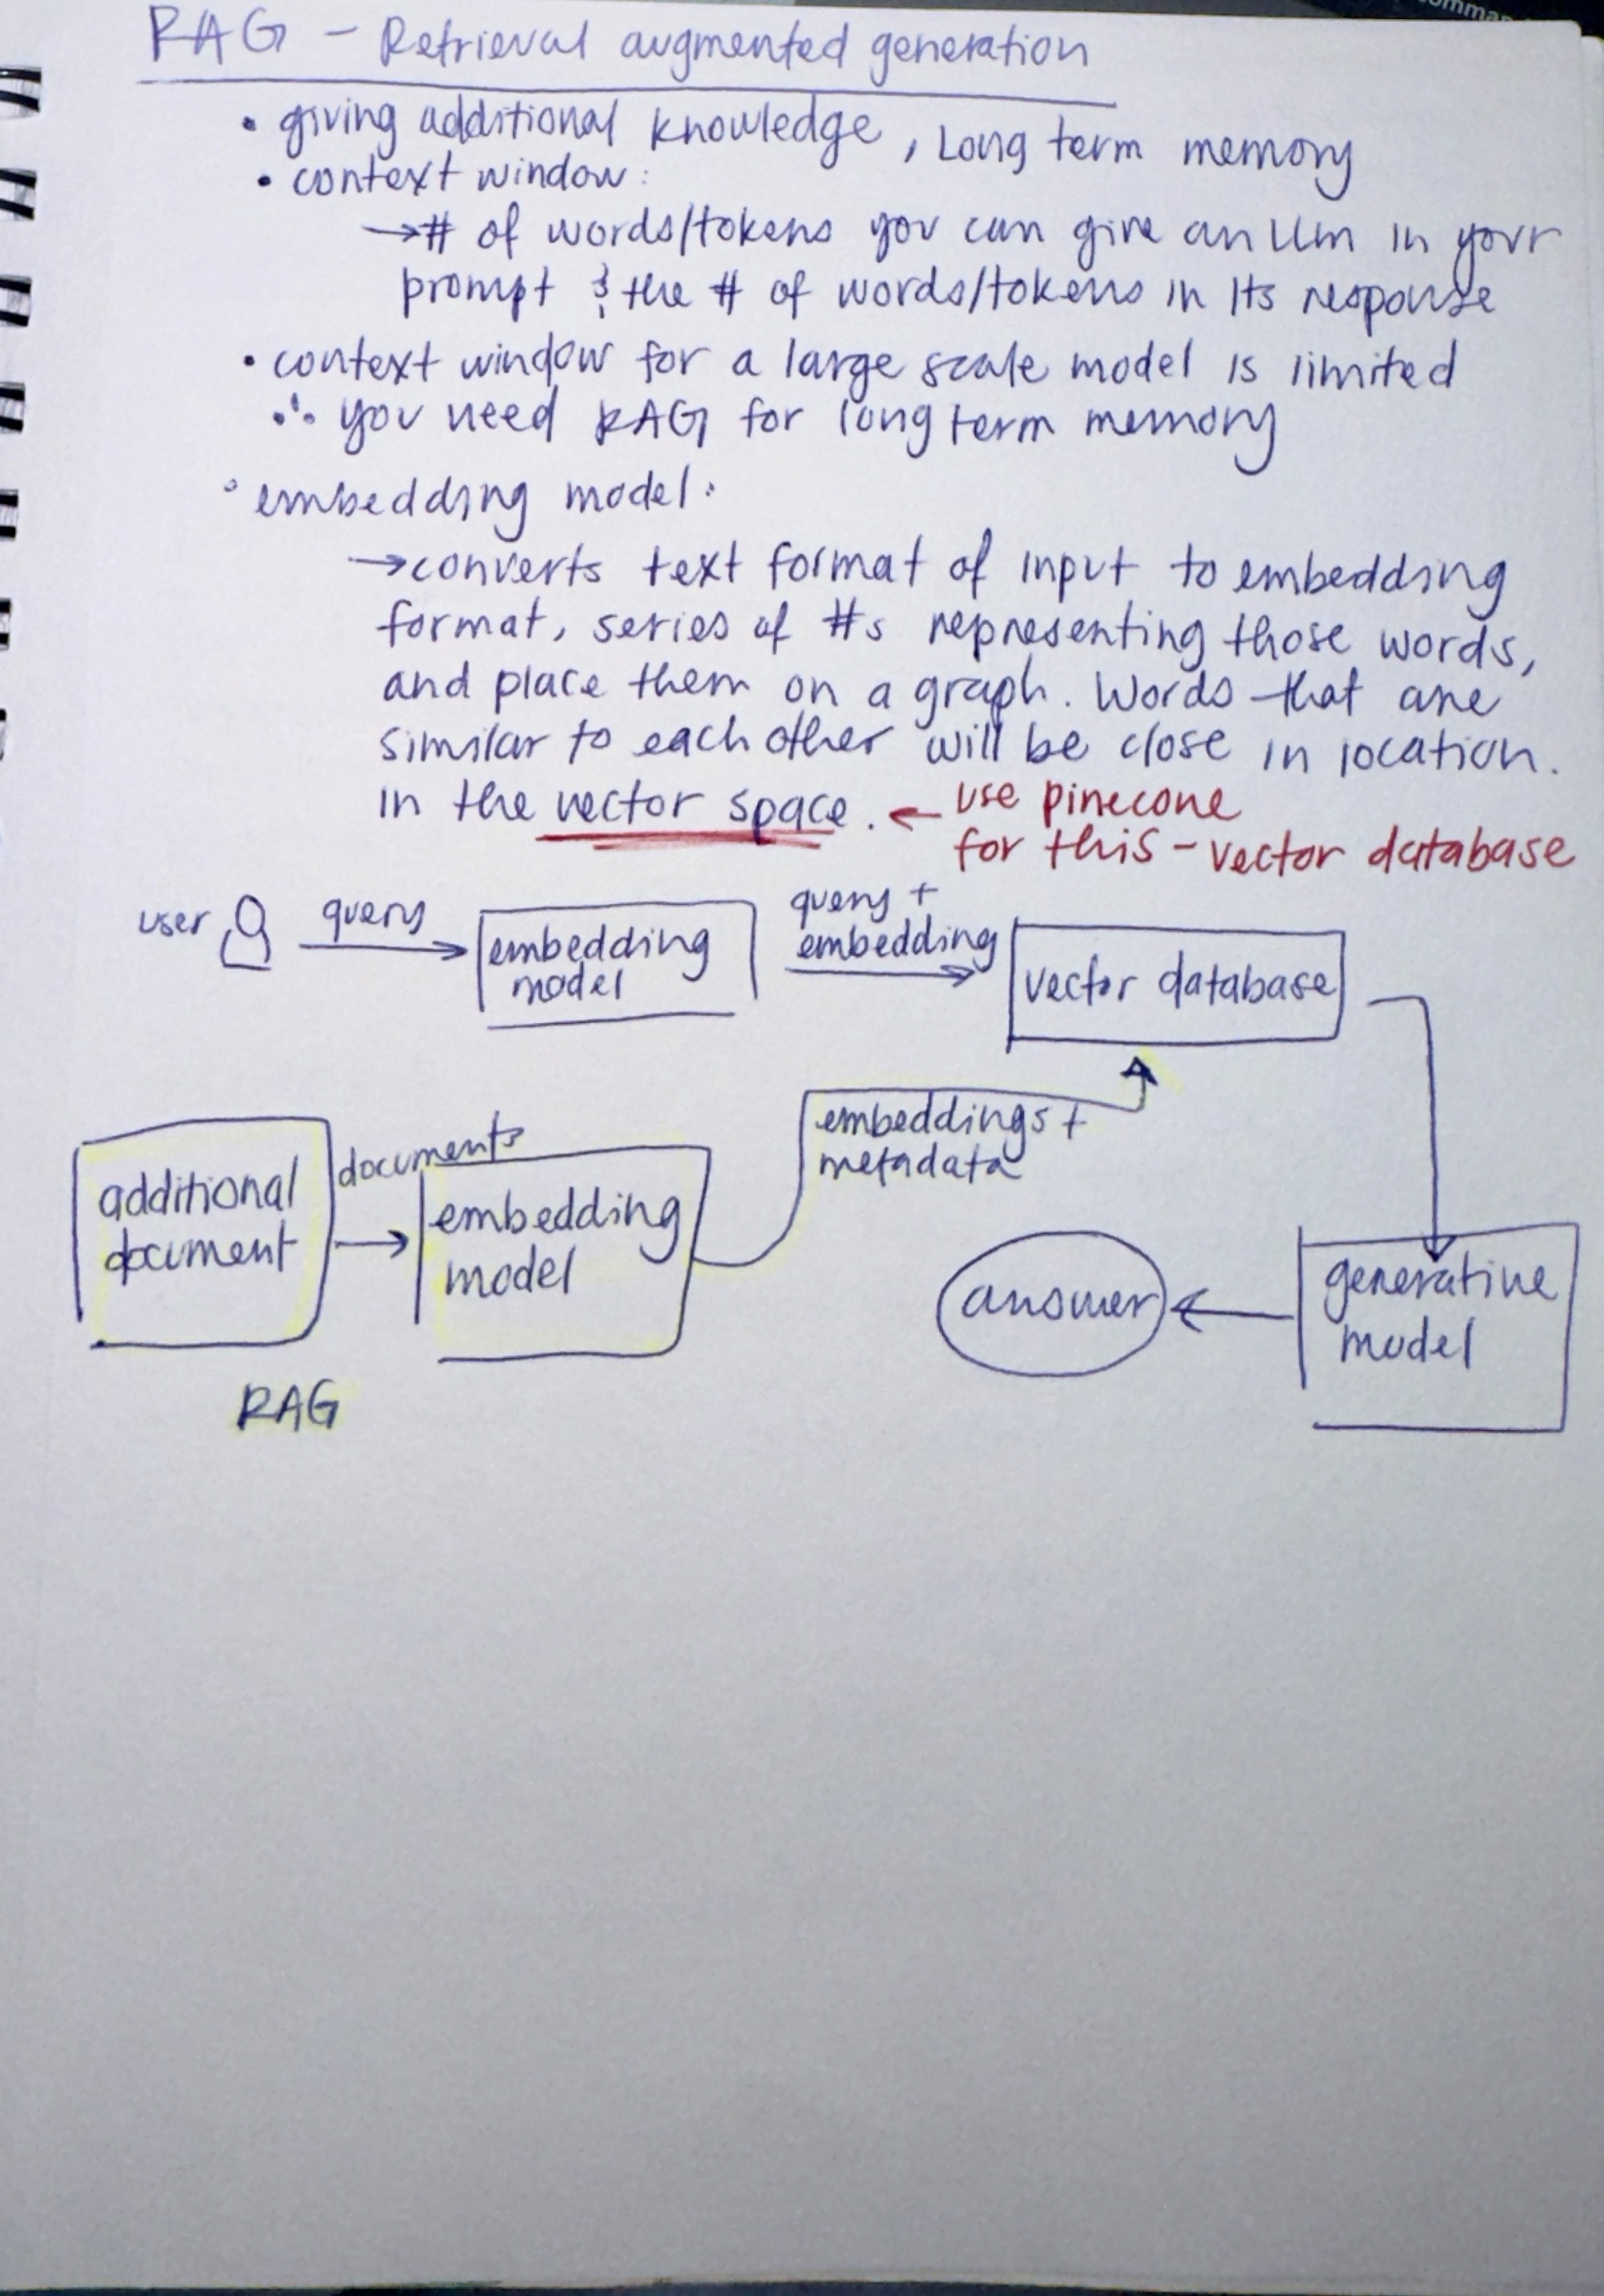 RAG - Retrieval augmented generation
• giving additional knowledge, Long term memory
• context window:
→ # of words/tokens you can give an LLM in your
prompt & the # of words/tokens in its response
• context window for a large scale model is limited
∴ you need RAG for long term memory
• embedding model:
→ converts text format of input to embedding
format, series of #s representing those words,
and place them on a graph. Words that are
similar to each other will be close in location.
in the vector space. ← use pinecone
for this - vector database
user
query
embedding
model
query +
embedding
vector database
additional
document
documents
embedding
model
embeddings +
metadata
generative
model
answer
RAG